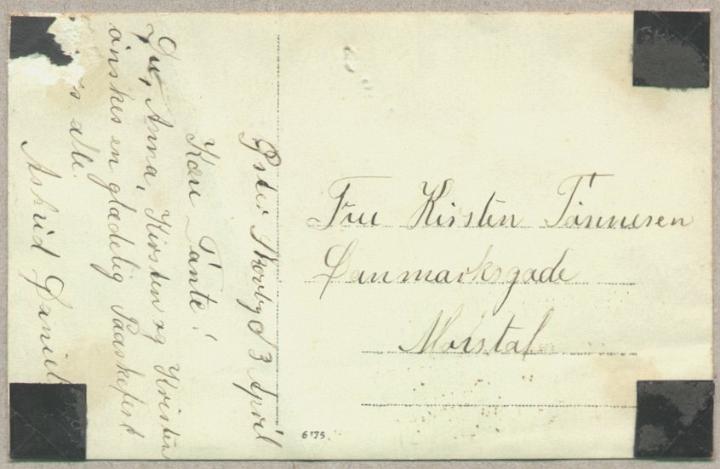 Øster Skovby d 3 April
Kære Tante!
Du, Anna, Kirsten og Kristen
ønskes en glædelig Paaskefest
alle.
Astrid Daniel
Fru Kirsten Tønnesen
Danmarksgade
Marstal
6135